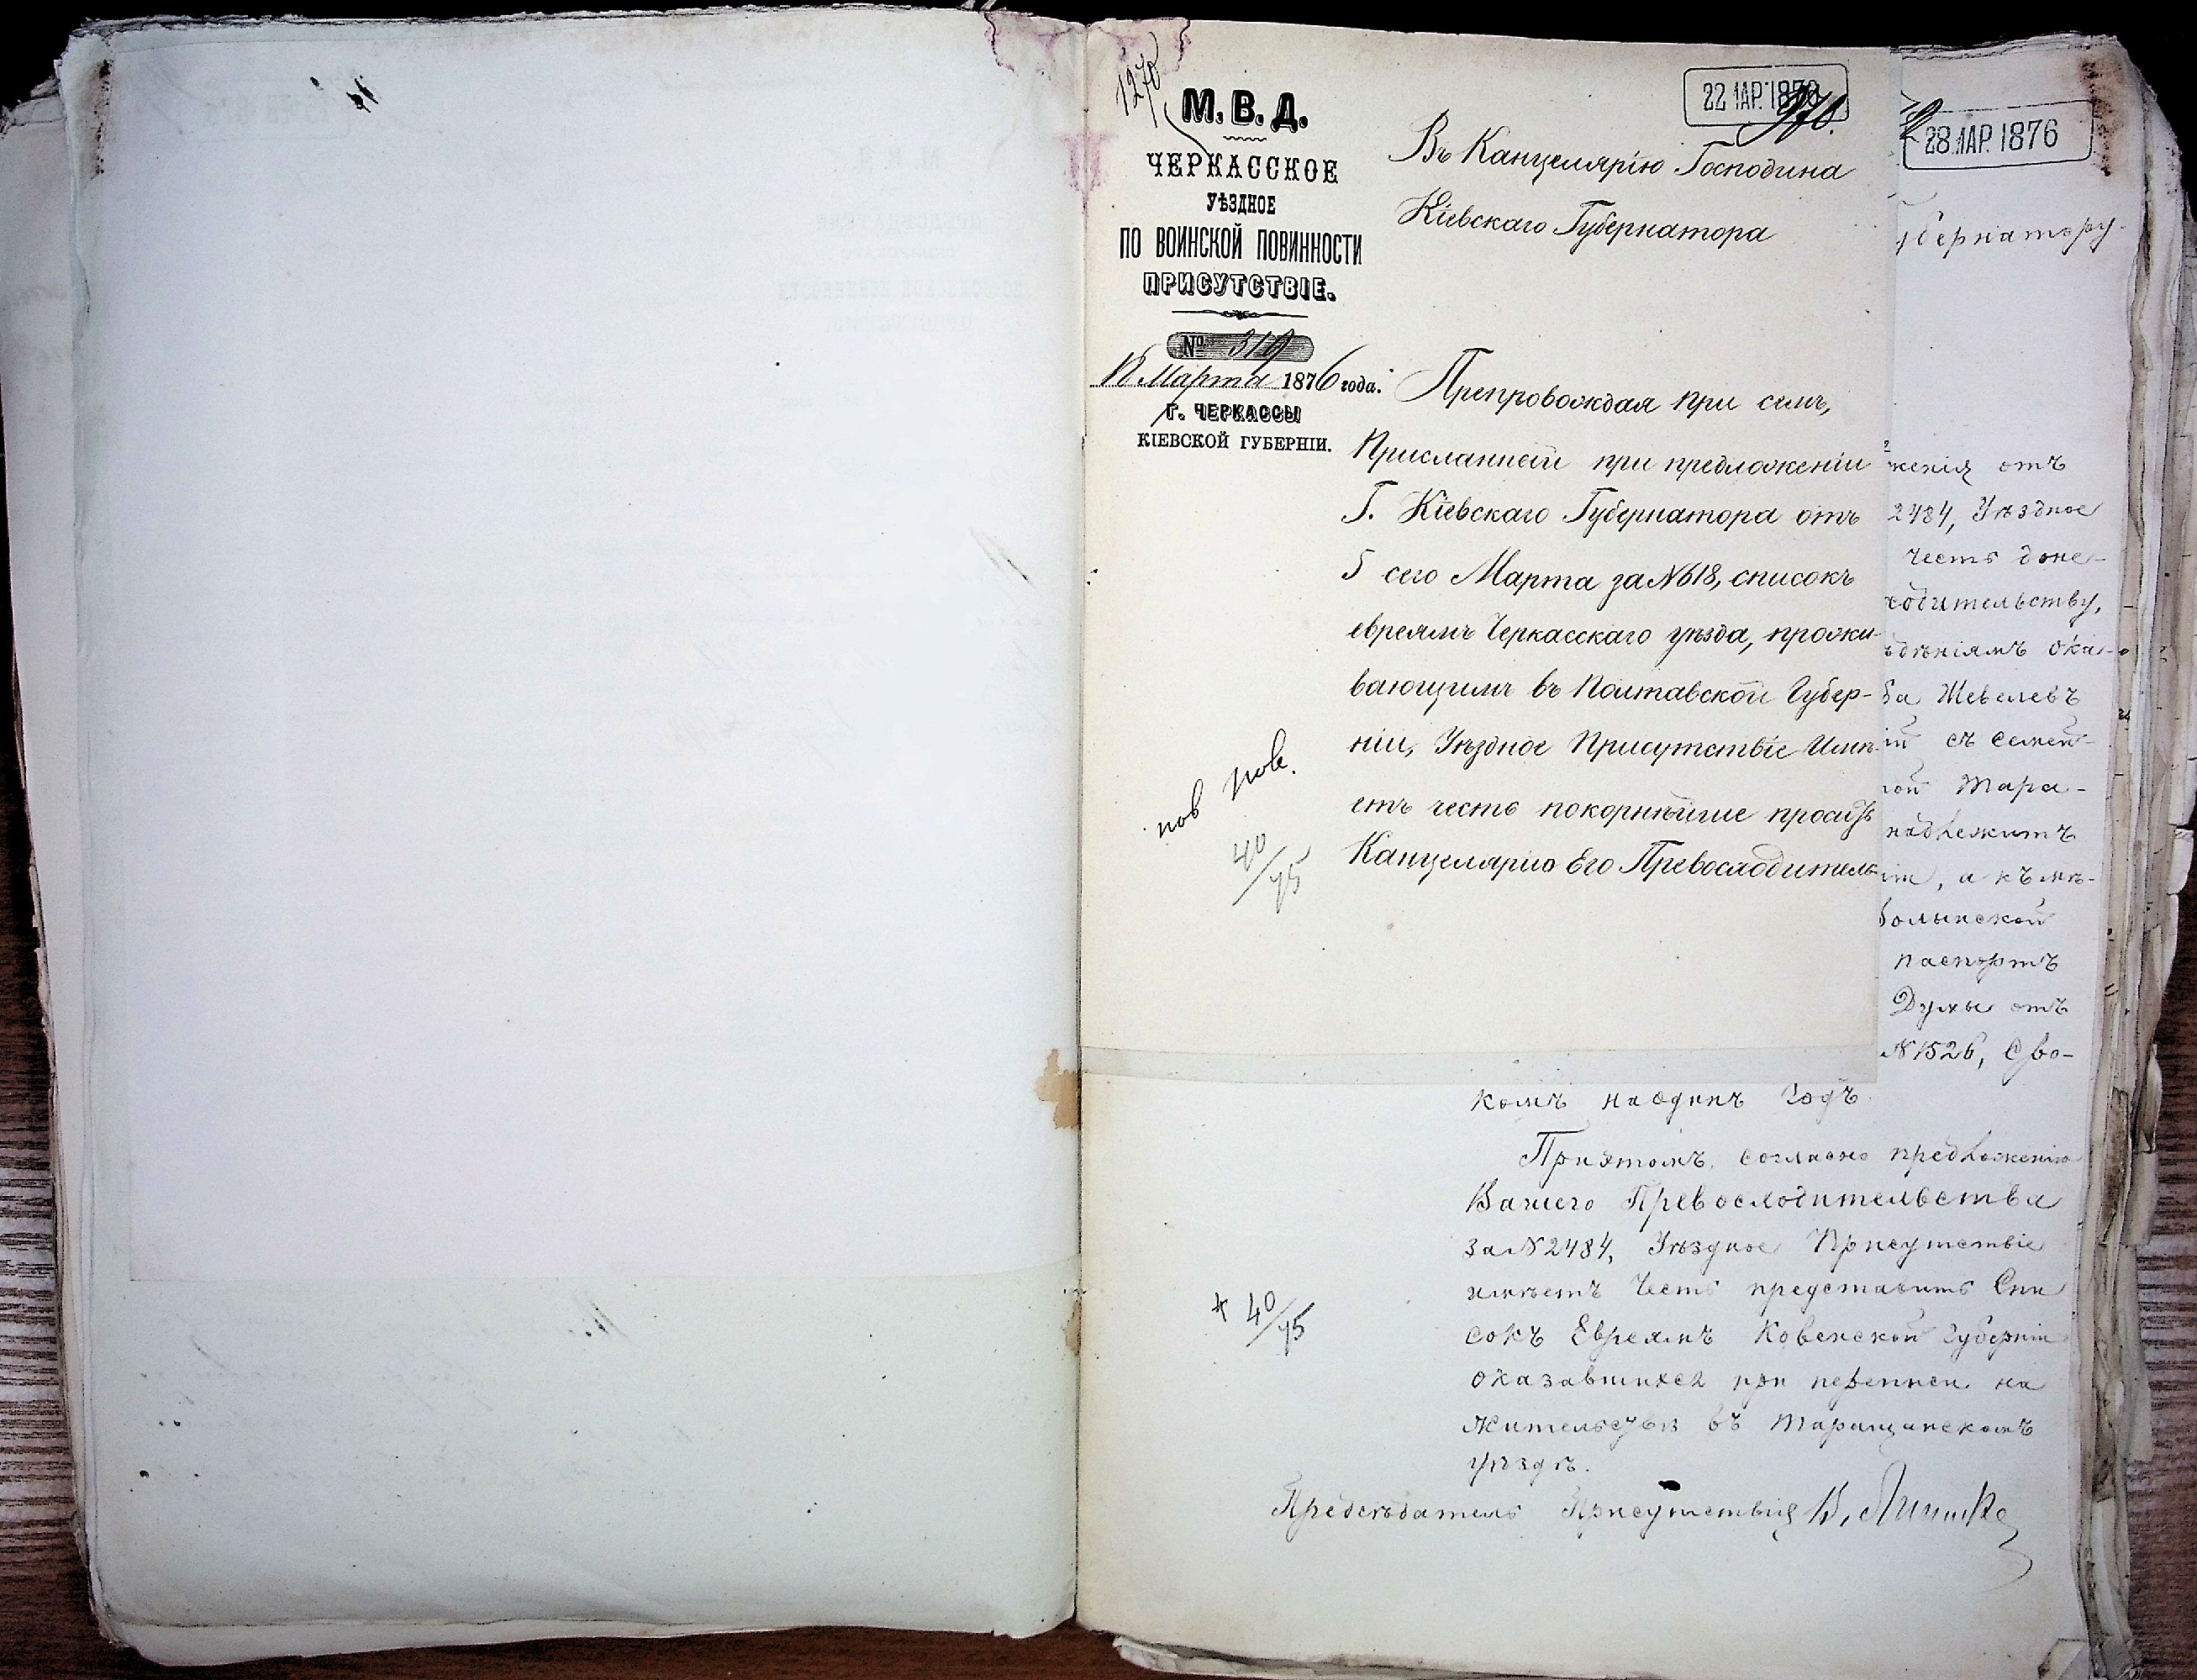 1270
М. В. Д.
ЧЕРКАССКОЕ
УѢЗДНОЕ
ПО ВОИНСКОЙ ПОВИННОСТИ
ПРИСУТСТВІЕ.
№ 319
Марта 1876 года.
Г. ЧЕРКАССЫ
КІЕВСКОЙ ГУБЕРНІИ.
22 МАР. 1876
Въ Канцелярію Господина
Кіевскаго Губернатора
Препровождая при семъ,
Присланный при предложеніи
Г. Кіевскаго Губернатора отъ
5 сего Марта за № 618, списокъ
евреямъ Черкасскаго уѣзда, прожи-
вающимъ въ Полтавской Губер-
ніи, Уѣздное Присутствіе Имѣ-
етъ честь покорнѣйше просить
Канцелярію Его Превосходитель-
40/75
28 МАР. 1876
убернатору
женія отъ
2484, Уѣздное
честь доне-
ходительству,
ѣдѣніямъ ока-
ба Шевелевъ
ій съ семей-
ной Тара-
надлежитъ
, а къ мѣ-
Волынской
паспортъ
Думы отъ
№ 1526, сро-
комъ на одинъ годъ.
При этомъ, согласно предложенію
Вашего Превосходительства
за № 2484, Уѣздное Присутствіе
имѣетъ честь представить Спи
сокъ Евреямъ Ковенской губерніи
оказавшихся при переписи на
жительствѣ въ Таращанскомъ
уѣздѣ.
40/75
Предсѣдатель Присутствія В.